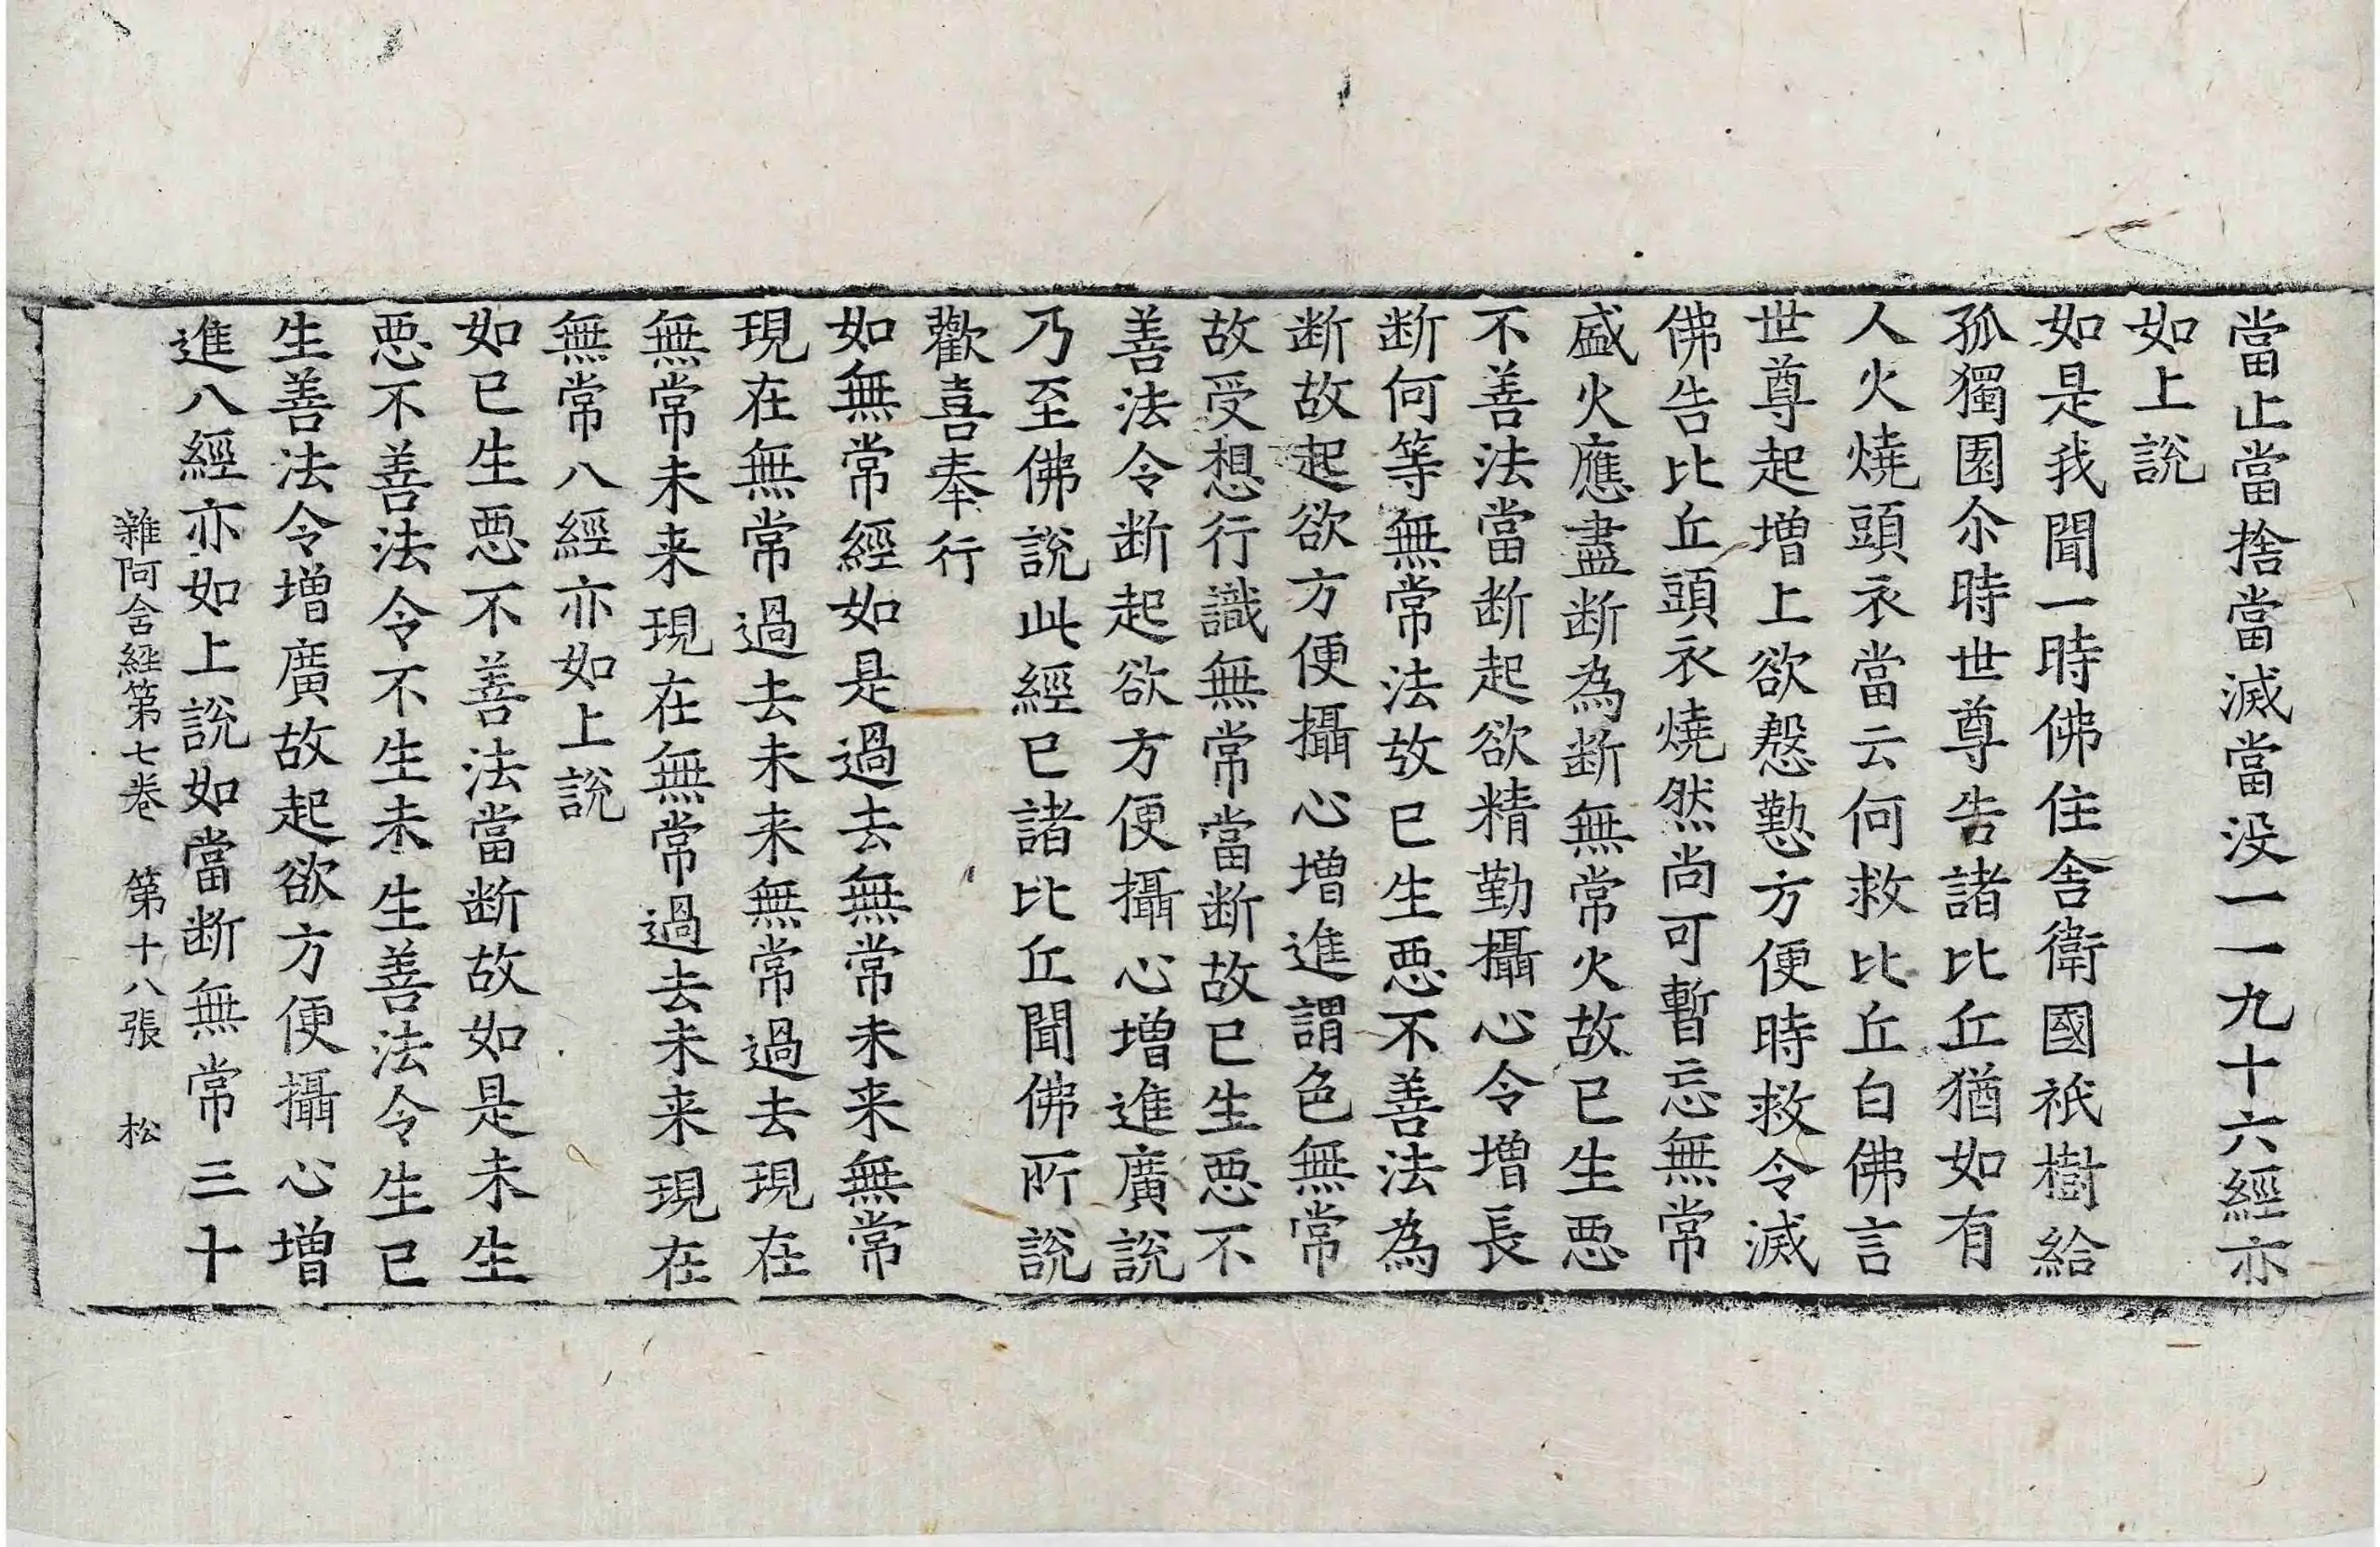 當止當捨當滅當没一一九十六經亦
如上說
如是我聞一時佛住舎衛國祇樹給
孤獨園尒時世尊告諸比丘猶如有
人火燒頭衣當云何救比丘白佛言
世尊起增上欲慇懃方便時救令滅
佛告比丘頭衣燒然尚可暫忘無常
盛火應盡断為断無常火故已生惡
不善法當断起欲精勤攝心令增長
断何等無常法故已生惡不善法為
断故起欲方便攝心增進謂色無常
故受想行識無常當断故已生惡不
善法令断起欲方便攝心增進廣說
乃至佛說此經已諸比丘聞佛所說
歡喜奉行
如無常經如是過去無常未来無常
現在無常過去未来無常過去現在
無常未来現在無常過去未来現在
無常八經亦如上說
如已生惡不善法當断故如是未生
惡不善法令不生未生善法令生已
生善法令增廣故起欲方便攝心增
進八經亦如上說如當断無常三十
雜阿含經第七卷　第十八張　松